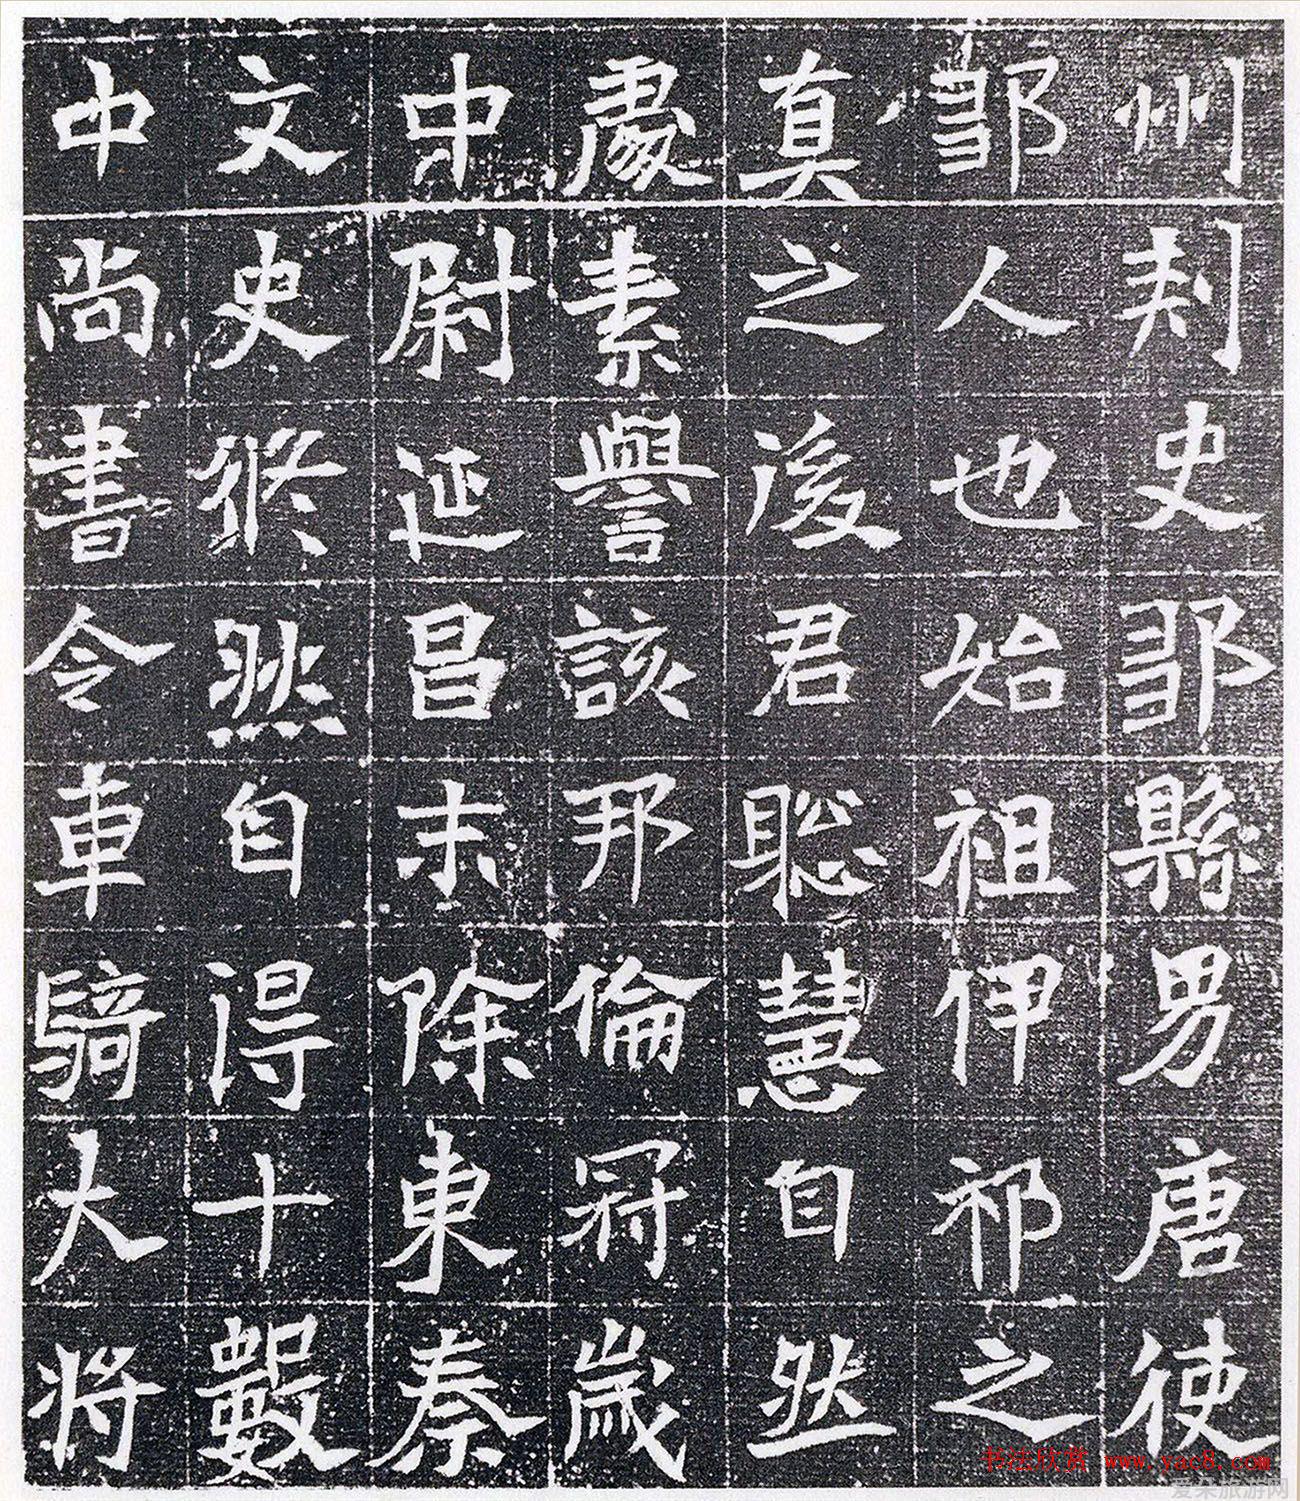 州刾史鄒縣男唐使
鄒人也始祖伊祁之
真之後君聦慧自然
處素譽該邦倫冠歲
中尉延昌末除東秦
文史修然自得十數
中尚書令車騎大將
书法欣赏 www.yac8.com
爱朵旅游网